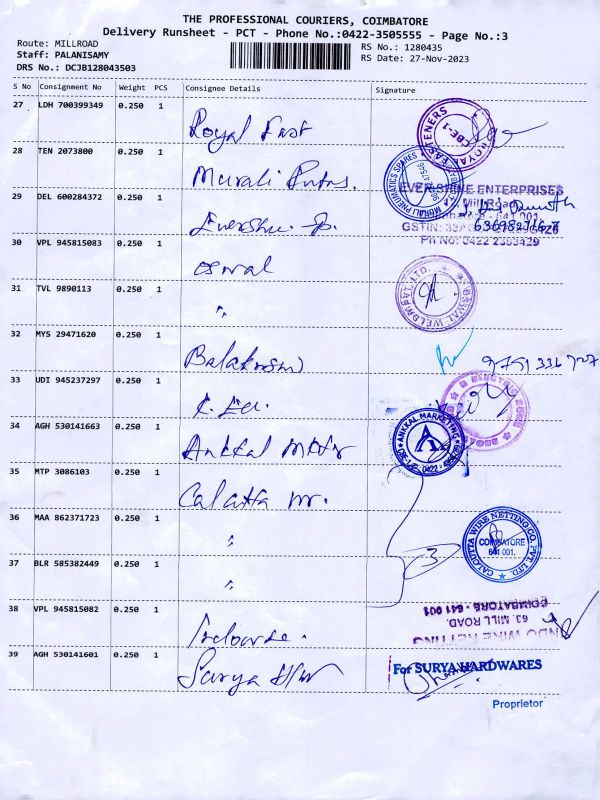 THE PROFESSIONAL COURIERS, COIMBATORE
Delivery Runsheet - PCT - Phone No.:0422-3505555 - Page No.:3
Route: MILLROAD
Staff: PALANISAMY
DRS No.: DCJB128043503
RS No.: 1280435
RS Date: 27-Nov-2023
S No Consignment No Weight PCS Consignee Details Signature
27 LDH 700399349 0.250 1 Royal Fast
ROYAL FASTENERS CBE-1
28 TEN 2073800 0.250 1 Murali
MURALI PNEUMATICS SPARES
29 DEL 600284372 0.250 1
EVERSHINE ENTERPRISES
Mill Road
641 001.
GSTIN: 33A
Ph No: 0422 2393429
30 VPL 945815083 0.250 1 Oswal
OSWAL WELDMESH
31 TVL 9890113 0.250 1 "
32 MYS 29471620 0.250 1 9791336727
33 UDI 945237297 0.250 1
34 AGH 530141663 0.250 1 Ankkal
ANKKAL MARKETING
35 MTP 3086103 0.250 1 Calcutta
36 MAA 862371723 0.250 1 "
CALCUTTA WIRE NETTING CO. PVT. LTD.
COIMBATORE
641 001.
37 BLR 585382449 0.250 1 "
3
38 VPL 945815082 0.250 1
INDO WIRE NETTING
63, MILL ROAD,
COIMBATORE - 641 001
39 AGH 530141601 0.250 1 Surya
For SURYA HARDWARES
Proprietor